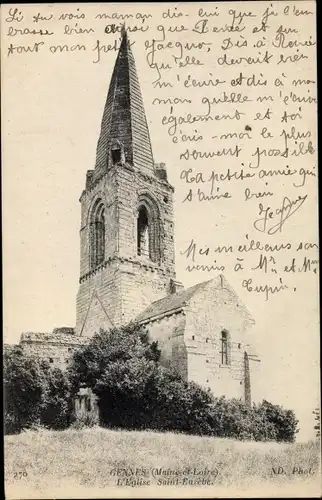 Si tu vois maman dis-lui que je l'em-
brasse bien ainsi que Renée et sur
tout mon petit Jacquo, Dis à Renée
qu'elle devrait bien
m'écrire et dis à ma
maman qu'elle m'écrive
également et toi
écris-moi le plus
souvent possible
Ta petite amie qui
t'aime bien
Mes meilleurs sou
venirs à Mr et Mme
270
GENNES (Maine-et-Loire).
L'Eglise Saint-Eusèbe.
ND. Phot.